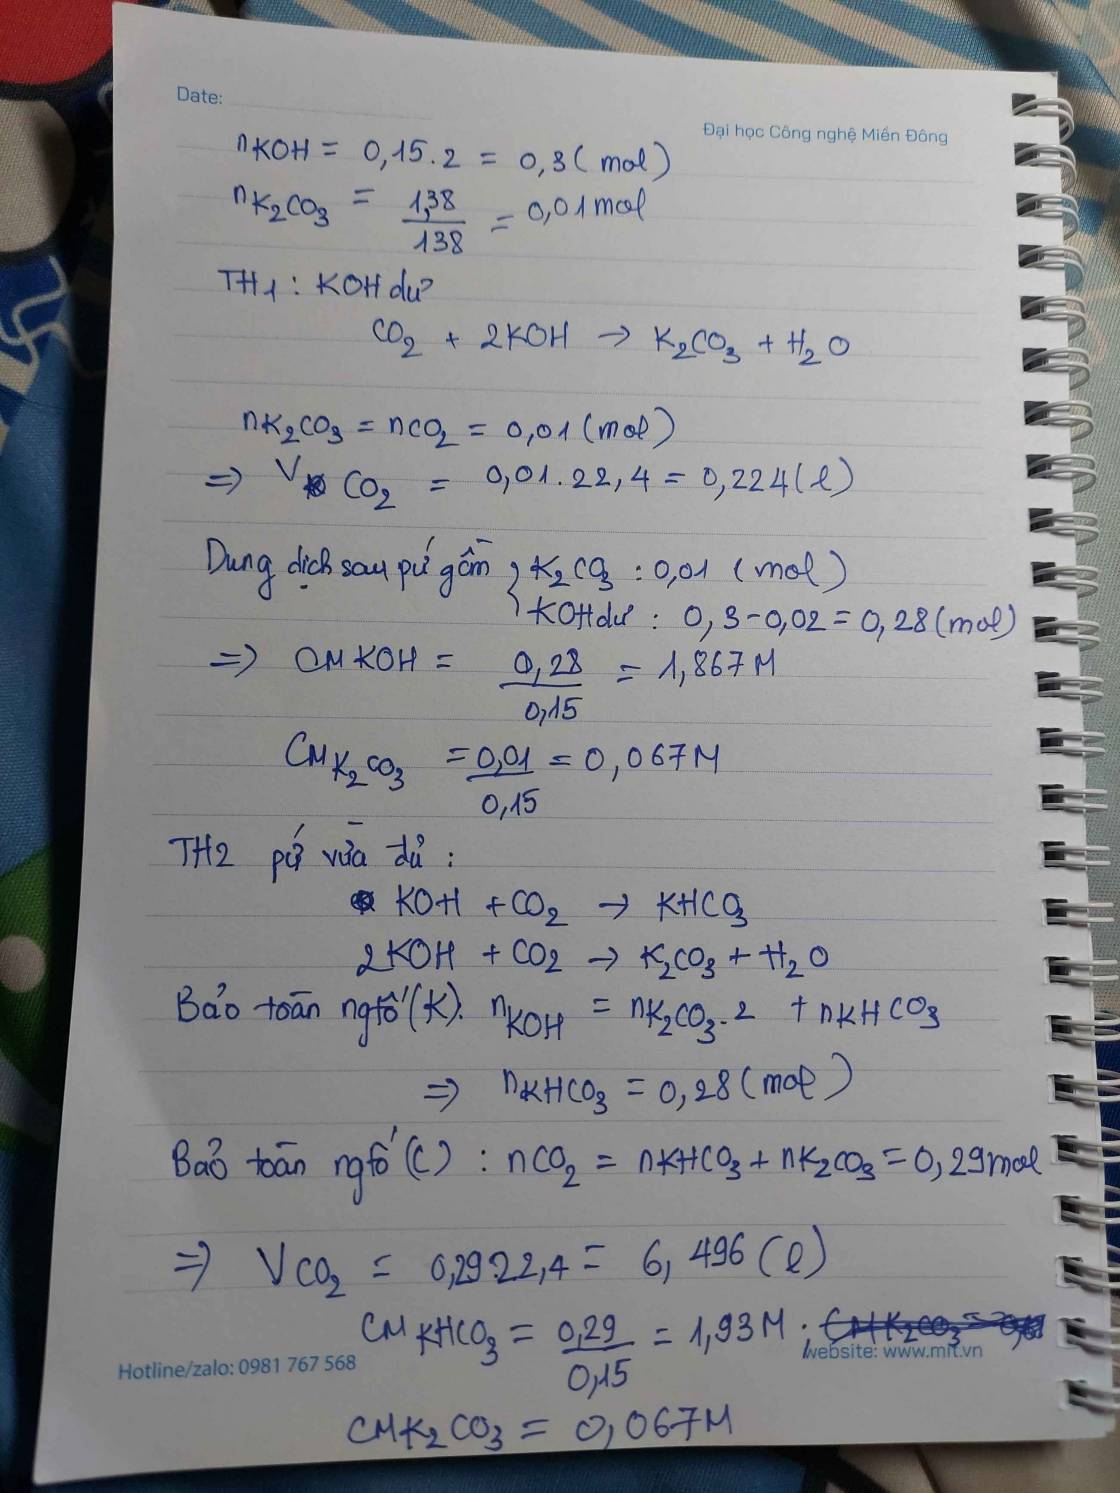 Date:
Đại học Công nghệ Miền Đông
nKOH = 0,15.2 = 0,3 (mol)
nK₂CO₃ = 1,38/138 = 0,01 mol
TH1 : KOH dư
CO₂ + 2KOH → K₂CO₃ + H₂O
nK₂CO₃ = nCO₂ = 0,01 (mol)
=> V CO₂ = 0,01.22,4 = 0,224 (l)
Dung dịch sau pứ gồm { K₂CO₃ : 0,01 (mol)
KOH dư : 0,3-0,02 = 0,28 (mol)
=> CM KOH = 0,28/0,15 = 1,867M
CM K₂CO₃ = 0,01/0,15 = 0,067M
TH2 pứ vừa đủ :
KOH + CO₂ → KHCO₃
2KOH + CO₂ → K₂CO₃ + H₂O
Bảo toàn ngtố (K). nKOH = nK₂CO₃.2 + nKHCO₃
=> nKHCO₃ = 0,28 (mol)
Bảo toàn ngtố (C) : nCO₂ = nKHCO₃ + nK₂CO₃ = 0,29 mol
=> VCO₂ = 0,29.22,4 = 6,496 (l)
CM KHCO₃ = 0,29/0,15 = 1,93M ;
Hotline/zalo: 0981 767 568
website: www.mit.vn
CM K₂CO₃ = 0,067M